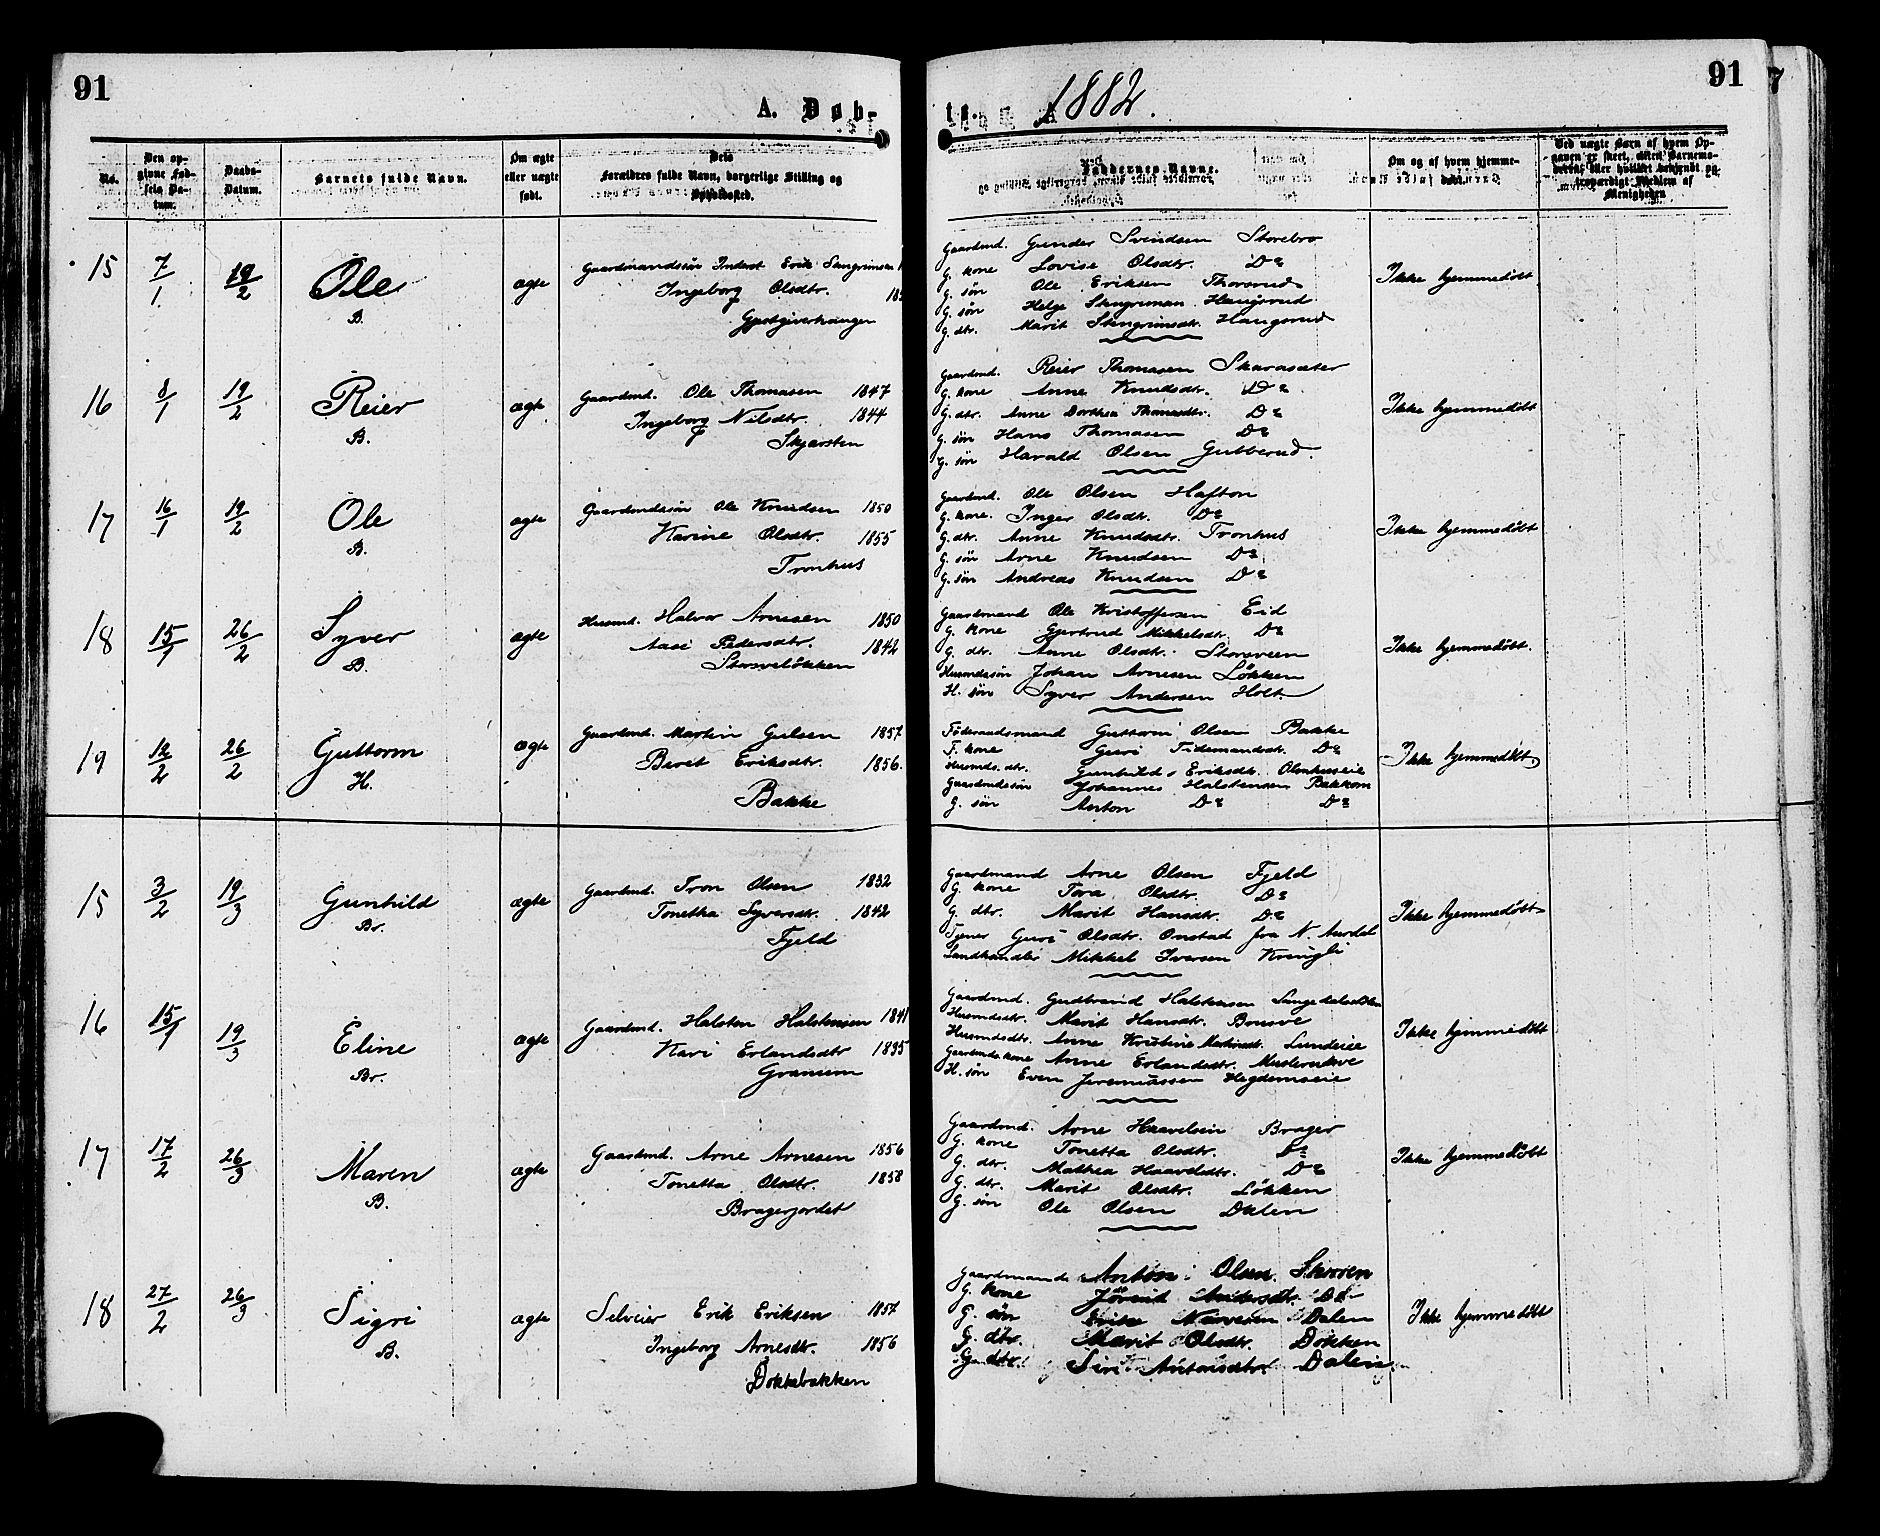 91
A. Døb-
te.
1882.
91
No.
Den opgivne Fødsels Datum.
Daabs-Datum.
Barnets fulde Navn.
Om ægte eller uægte født.
Forældres fulde Navn, borgerlige Stilling og Opholdssted.
Faddernes Navne.
Om og af hvem hjemmedøbt.
15 7/1 19/2 Ole B. ægte
Gaardmandssøn Inderst Erik Stengrimsen
Ingeborg Olsdtr.
Gjæstgiverhaugen
Gaardmd. Gunder Svendsen Storebro
G. kone Lovise Olsdtr. Do
G. søn Ole Eriksen Thorsrud
G. søn Helge Stengrimsen Haugsrud
G. dtr. Marit Stengrimsdtr. Haugsrud
Ikke hjemmedøbt
16 8/1 19/2 Reier B. ægte
Gaardmd. Ole Thomasen 1847
Ingeborg Nilsdtr. 1844
Skjarsten
Gaardmd. Reier Thomasen Skarasæter
G. kone Anne Knudsdtr. Do
G. dtr. Anne Dorthea Thomasdtr. Do
G. søn Hans Thomasen Do
G. søn Harald Olsen Gutterud.
Ikke hjemmedøbt
17 16/1 19/2 Ole B. ægte
Gaardmdssøn Ole Knudsen 1850
Karine Olsdtr. 1855
Tronhus
Gaardmd. Ole Olsen Hafton
G. kone. Inger Olsdtr. Do
G. dtr. Anne Knudsdtr. Tronhus
G. søn Arne Knudsen Do
G. søn Andreas Knudsen Do
Ikke hjemmedøbt
18 15/1 26/2 Syver B. ægte
Husmd. Halvor Arnesen 1850
Aase Pedersdtr. 1842
Storsvelökken
Gaardmand Ole Kristoffersen Eid
G. kone Gjertrud Mikkelsdtr. Do
G. dtr. Anne Olsdtr. Storsveen
Husmdssøn Johan Arnesen Løkken
H. søn Syver Andersen Holt
Ikke hjemmedøbt.
19 12/2 26/2 Guttorm H. ægte
Gaardmd. Martin Gulsen 1857
Berit Eriksdtr. 1856.
Bakke
Föderaadsmand Guttorm Olsen Bakke
F. kone Guri Tidemandsdtr. Do
Husmds. dtr. Gunhild Eriksdtr. Olenhuseie
Gaardmdssøn Johannes Halstensen Bakkom
G. søn Anton Do Do
Ikke hjemmedøbt
15 3/2 19/3 Gunhild Br. ægte
Gaardmd. Tron Olsen 1832
Tonetha Syversdtr. 1842
Fjeld
Gaardmand Arne Olsen Fjeld
G. kone Tora Olsdtr. Do
G. dtr. Marit Hansdtr. Do
Tjener Guri Olsdtr. Onstad fra N. Aurdal
Landhandler Mikkel Iversen Kringli
Ikke hjemmedøbt
16 15/1 19/3 Eline Br. ægte
Gaardmd. Halsten Halstensen 1841
Kari Erlandsdtr 1835
Granum
Gaardmd. Gudbrand Halstensen
Husmdsdtr. Marit Hansdtr. Brusve
Husmdsdtr. Anne Kristine Lundeie
Gaardmds kone Anne Erlandsdtr.
H. søn Even Jeremiassen Hegdemseie
Ikke hjemmedøbt
17 17/2 26/3 Maren B. ægte
Gaardmd. Arne Arnesen 1856
Tonetta Olsdtr. 1858
Bragerjordet
Gaardmd. Arne Haavelsen Brager
G. kone Tonetta Olsdtr. Do
G. dtr. Mathea Haavelsdtr. Do
G. dtr. Marit Olsdtr. Løkken
G. søn Ole Olsen Dalen
Ikke hjemmedøbt
18 27/2 26/3 Sigri B. ægte
Selveier Erik Eriksen 1857
Ingeborg Arnesdtr. 1856
Dokkebakken
Gaardmands Anton Olsen Skoren
G. kone Jörend Andersdtr. Do
G. søn Erik Dalen
G. dtr. Marit Olsdtr. Dokken
G. dtr. Siri Antonsdtr. Dalen
Ikke hjemmedøbt